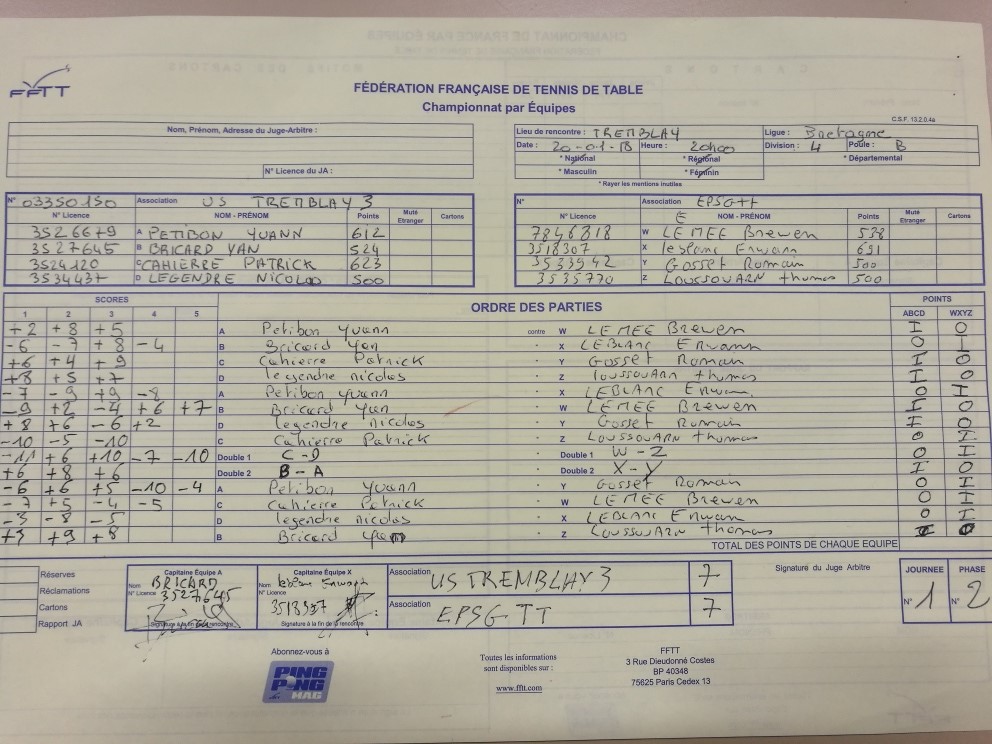 FFTT
FÉDÉRATION FRANÇAISE DE TENNIS DE TABLE
Championnat par Équipes
C.S.F. 13.2.0.4a
Nom, Prénom, Adresse du Juge-Arbitre :
N° Licence du JA :
Lieu de rencontre : TREMBLAY Ligue : Bretagne
Date : 20-01-18 Heure : 20h00 Division : 4 Poule : B
* National * Régional * Départemental
* Masculin * Féminin
* Rayer les mentions inutiles
N° 03350150 Association US TREMBLAY 3
N° Licence NOM - PRÉNOM Points Muté Etranger Cartons
3526679 A PETIBON YUANN 612
3527645 B BRICARD YAN 524
3524120 C CAHIERRE PATRICK 623
3534437 D LEGENDRE NICOLAS 500
N° Association EPSGTT
N° Licence NOM - PRÉNOM Points Muté Etranger Cartons
7846818 W LE MEE Brewen 538
3518307 X leblanc Erwann 651
3533942 Y Gosset Romain 500
3535770 Z LOUSSOUARN thomas 500
SCORES ORDRE DES PARTIES POINTS
1 2 3 4 5 ABCD WXYZ
+2 +8 +5 A Petibon Yuann contre W LE MEE Brewen I O
-6 -7 +8 -4 B Bricard Yan - X LEBLANC Erwann O I
+6 +4 +9 C Cahierre Patrick - Y Gosset Romain I O
+8 +5 +7 D legendre nicolas - Z LOUSSOUARN thomas I O
-7 -9 +9 -8 A Petibon Yuann - X LEBLANC Erwan O I
-9 +2 -4 +6 +7 B Bricard Yan - W LE MEE Brewen I O
+8 +6 -6 +2 D legendre nicolas - Y Gosset Romain I O
-10 -5 -10 C Cahierre Patrick - Z LOUSSOUARN thomas O I
-11 +6 +10 -7 -10 Double 1 C-D - Double 1 W-Z O I
+6 +8 +6 Double 2 B-A - Double 2 X-Y I O
-6 +6 +5 -10 -4 A Petibon Yuann - Y Gosset Romain O I
-7 +5 -4 -5 C Cahierre Patrick - W LE MEE Brewen O I
-3 -8 -5 D legendre nicolas - X LEBLANC Erwan O I
+3 +9 +8 B Bricard Yan - Z LOUSSOUARN thomas I O
TOTAL DES POINTS DE CHAQUE EQUIPE
Réserves
Réclamations
Cartons
Rapport JA
Capitaine Équipe A
Nom BRICARD
N° Licence 3527645
Signature à la fin de la rencontre
Capitaine Équipe X
Nom
N° Licence
3518307
Signature à la fin de la rencontre
Association US TREMBLAY 3 7
Association EPSG TT 7
Signature du Juge Arbitre
JOURNEE PHASE
N° 1 N° 2
Abonnez-vous à
PING PONG MAG
Toutes les informations
sont disponibles sur :
www.fftt.com
FFTT
3 Rue Dieudonné Costes
BP 40348
75625 Paris Cedex 13